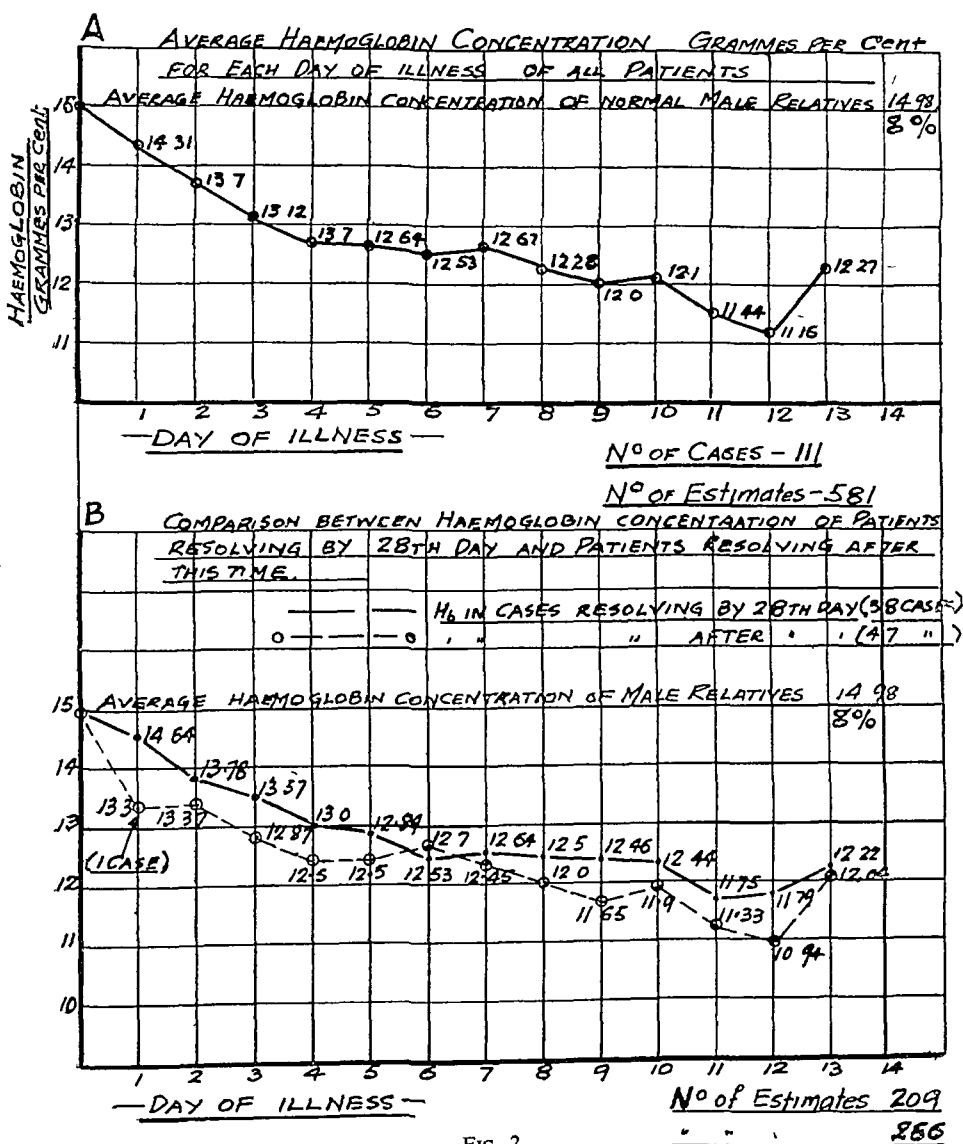 A
AVERAGE HAEMOGLOBIN CONCENTRATION GRAMMES PER Cent
FOR EACH DAY OF ILLNESS OF ALL PATIENTS
AVERAGE HAEMOGLOBIN CONCENTRATION OF NORMAL MALE RELATIVES 14 98
8%
HAEMOGLOBIN
GRAMMES PER Cent.
15
14
13
12
11
14 31
13 7
13 12
13 7
12 64
12 53
12 67
12 28
12 0
12 1
11 44
11 16
12 27
1 2 3 4 5 6 7 8 9 10 11 12 13 14
—DAY OF ILLNESS—
No OF CASES - 111
No OF Estimates - 581
B
COMPARISON BETWEEN HAEMOGLOBIN CONCENTRATION OF PATIENTS
RESOLVING BY 28TH DAY AND PATIENTS RESOLVING AFTER
THIS TIME.
Hb IN CASES RESOLVING BY 28TH DAY (38 CASES)
" " " AFTER " " (47 ")
AVERAGE HAEMOGLOBIN CONCENTRATION OF MALE RELATIVES 14 98
8%
15
14
13
12
11
10
14 64
13.78
13 57
13 0
12.84
12 53
12 64
12 5
12 46
12 44
11 75
11 79
12 22
13 3
(1 CASE)
13 37
12 87
12.5
12.5
12 7
12.45
12 0
11 65
11 9
11.33
10 94
12.04
1 2 3 4 5 6 7 8 9 10 11 12 13 14
—DAY OF ILLNESS—
No of Estimates 209
" " " 266
FIG. 2